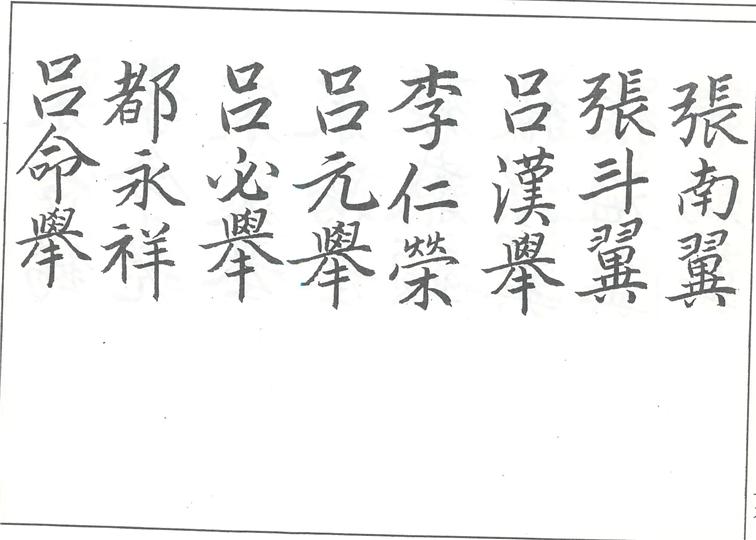 張南翼
張斗翼
呂漢舉
李仁榮
呂元舉
呂必舉
都永祥
呂命舉